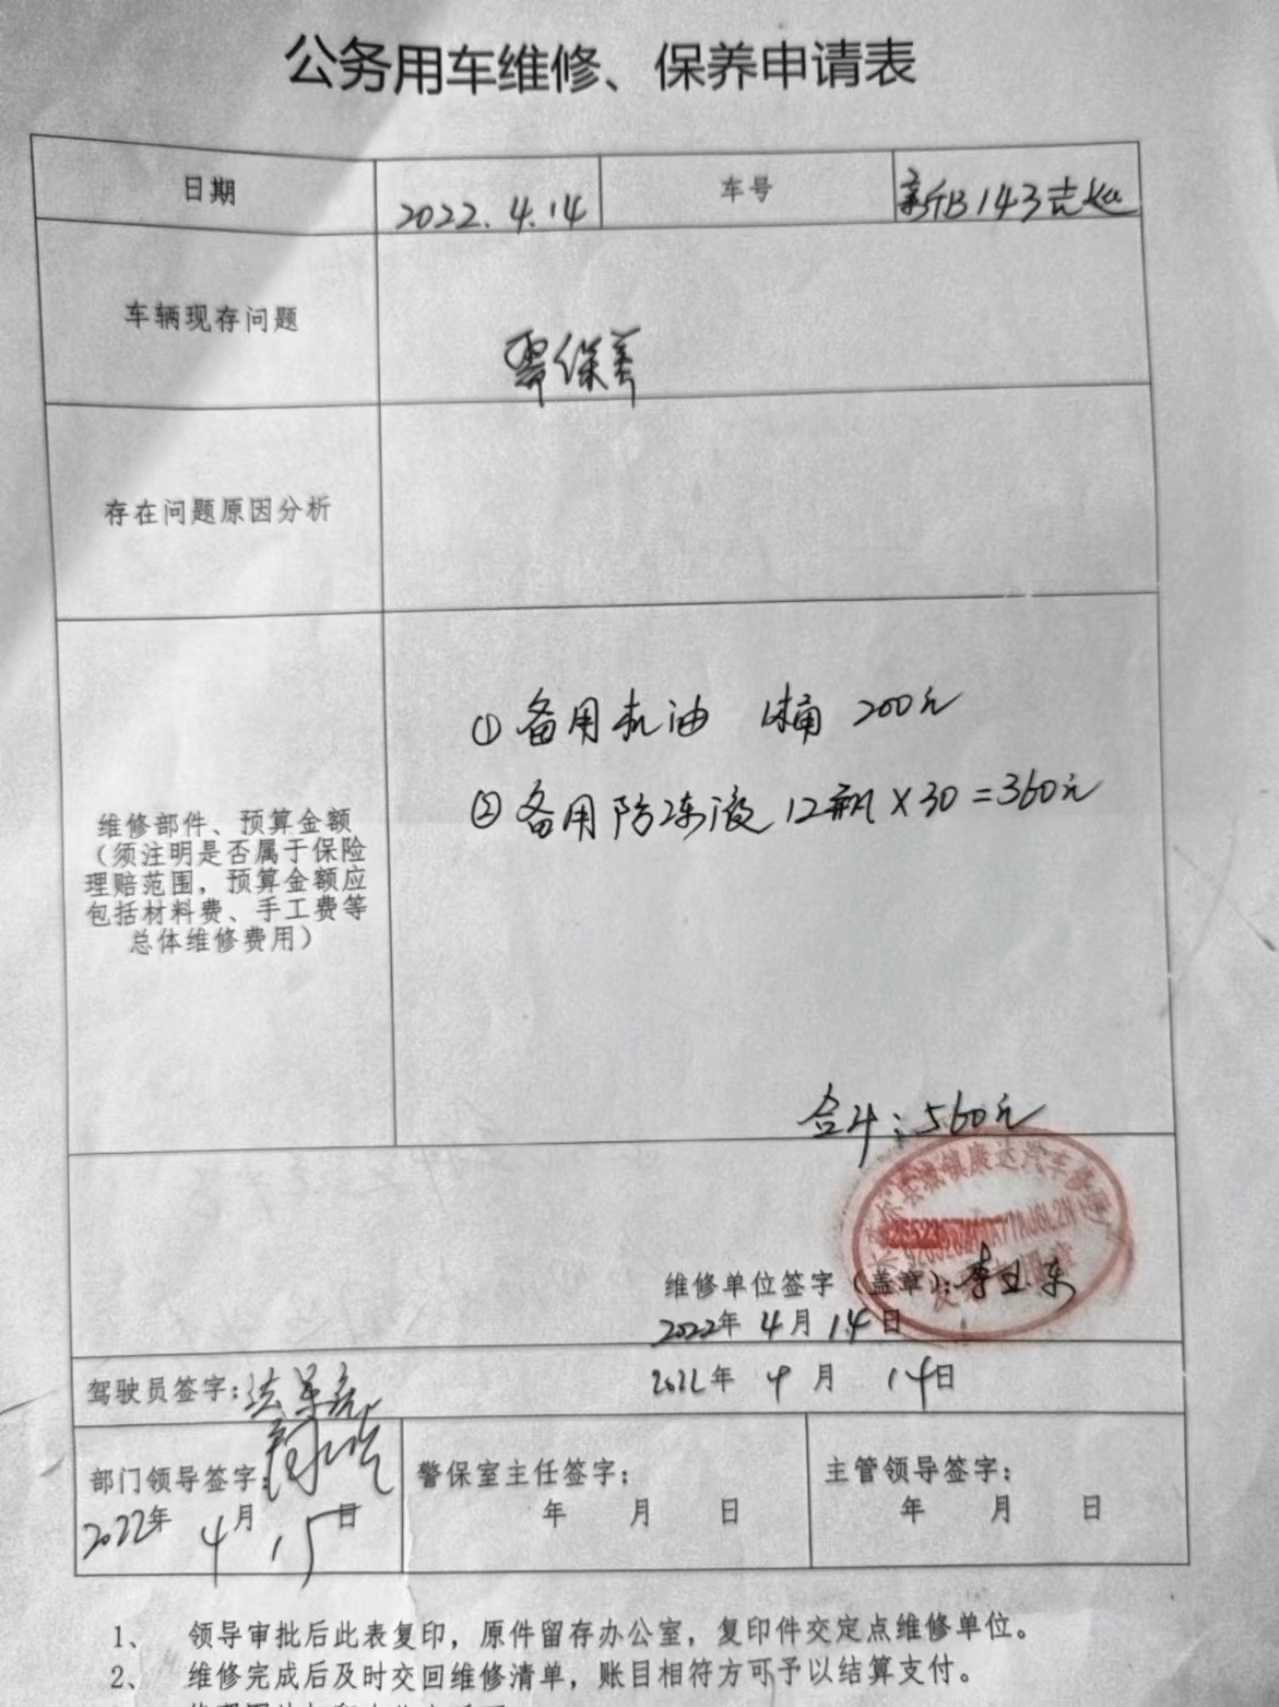 公务用车维修、保养申请表
日期 2022.4.14 车号 新B143
车辆现存问题 需保养
存在问题原因分析
①备用机油 1桶 200元
②备用防冻液 12瓶×30=360元
维修部件、预算金额
（须注明是否属于保险
理赔范围，预算金额应
包括材料费、手工费等
总体维修费用）
合计：560元
县城镇康达汽车修理厂
维修单位签字（盖章）：
2022年 4月 14日
驾驶员签字： 2022年 4月 14日
部门领导签字： 警保室主任签字： 主管领导签字：
2022年 4月 15日 年 月 日 年 月 日
1、 领导审批后此表复印，原件留存办公室，复印件交定点维修单位。
2、 维修完成后及时交回维修清单，账目相符方可予以结算支付。